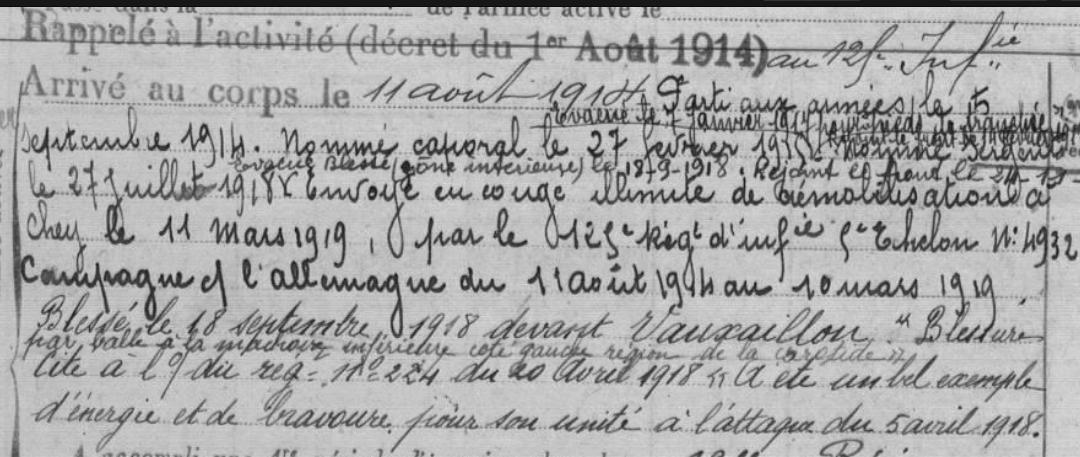 de l'armée active le
Rappelé à l'activité (décret du 1er Août 1914) au 125e Infie
Arrivé au corps le 11 août 1914 Parti aux armées le 5
Evacué le 7 janvier pieds de tranchée
septembre 1914. Nommé caporal le 27 février 19 nommé sergent
Evacué Blessé (zône intérieure) le 18-9-1918. Rejoint le front le 24-1
le 27 Juillet 1918 Envoyé en congé illimité de démobilisation à
Chey le 11 Mars 1919, par le 125e Régt d'infie 5e Echelon No: 4932
Campagne c/ l'allemagne du 11 août 1914 au 10 mars 1919.
Blessé le 18 septembre 1918 devant Vauxaillon "Blessure
par balle à la machoire inférieure coté gauche région de la carotide"
Cité à l'O du reg= No= 224 du 20 Avril 1918 "A été un bel exemple
d'énergie et de bravoure pour son unité à l'attaque du 5 avril 1918.